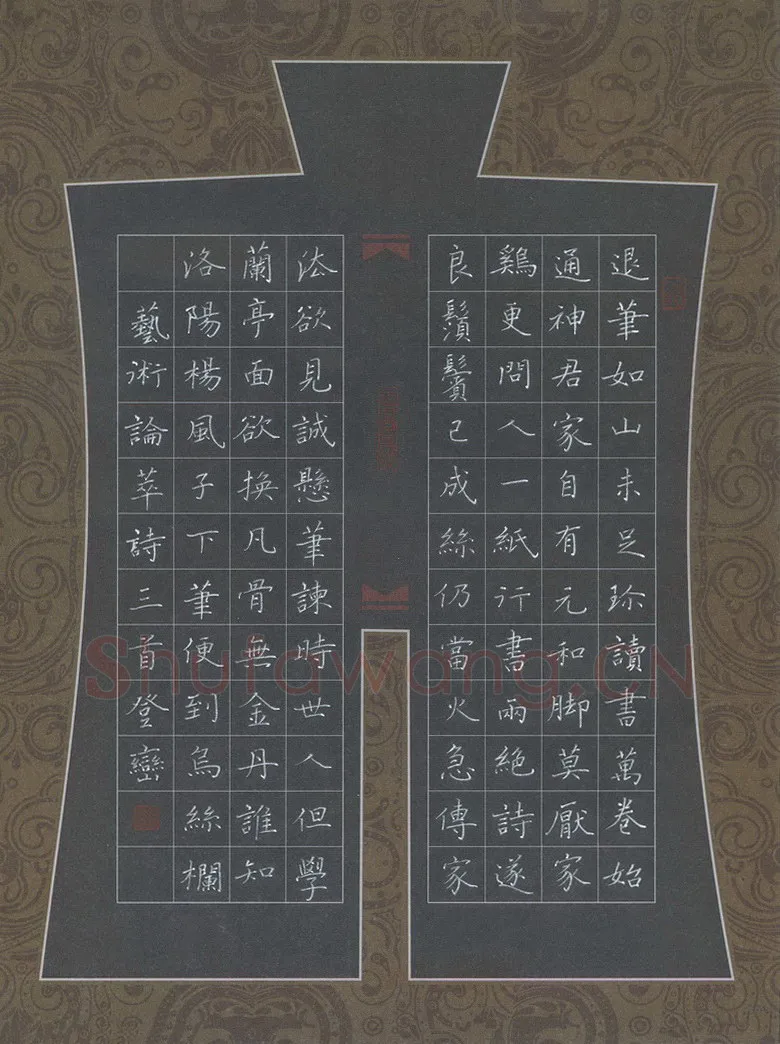 退筆如山未足珎讀書萬卷始
通神君家自有元和脚莫厭家
鷄更問人一紙行書兩絕詩遂
良鬚鬢已成絲仍當火急傳家
法欲見誠懸筆諫時世人但學
蘭亭面欲換凡骨無金丹誰知
洛陽楊風子下筆便到烏絲欄
藝術論萃詩三首登巒
Shufawang.CN